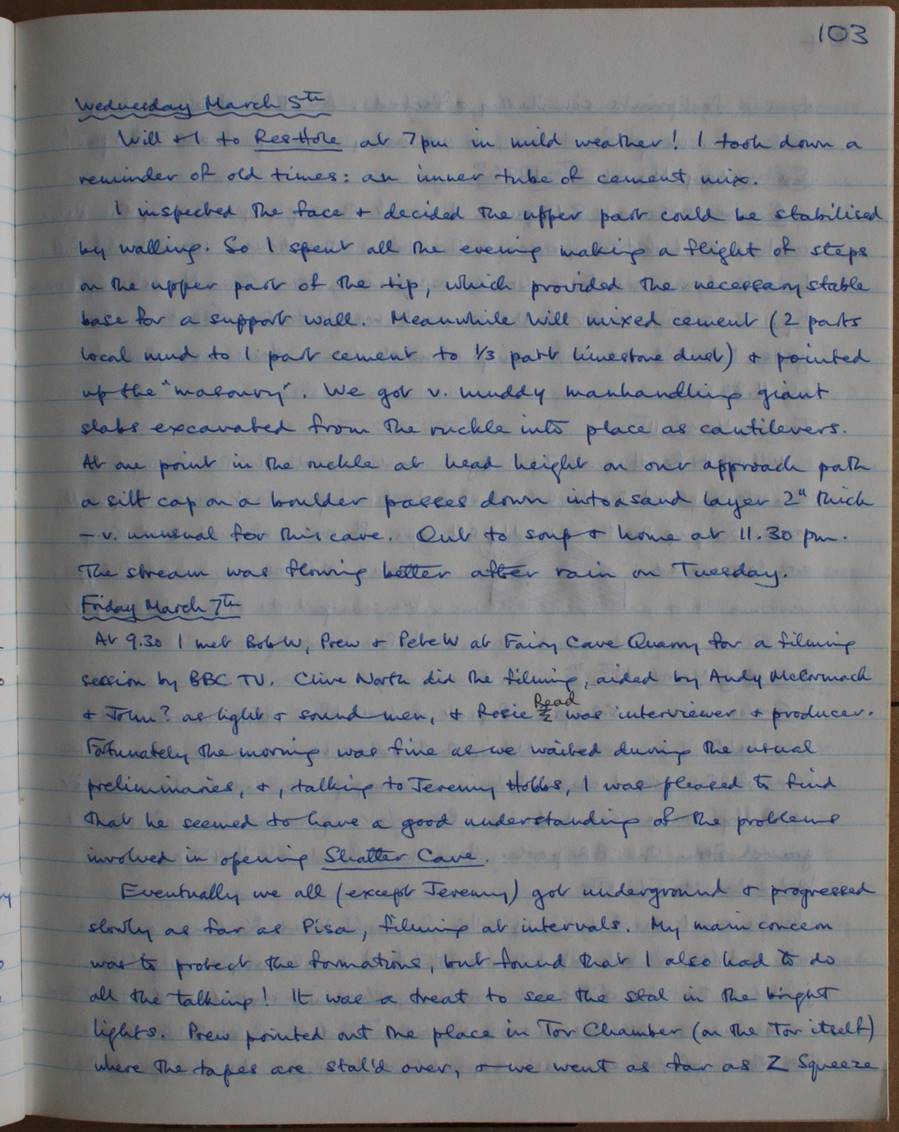 103
Wednesday March 5th
Will + I to Resthole at 7pm in mild weather! I took down a
reminder of old times: an inner tube of cement mix.
I inspected the face + decided the upper part could be stabilised
by walling. So I spent all the evening making a flight of steps
on the upper part of the tip, which provided the necessary stable
base for a support wall. Meanwhile Will mixed cement (2 parts
local mud to 1 part cement to 1/3 part limestone dust) + pointed
up the "masonry". We got v. muddy manhandling giant
slabs excavated from the ruckle into place as cantilevers.
At one point in the ruckle at head height on our approach path
a silt cap on a boulder passes down into a sand layer 2" thick
– v. unusual for this cave. Out to soup + home at 11.30 pm.
The stream was flowing better after rain on Tuesday.
Friday March 7th
At 9.30 I met Bob W, Prew + Pete W at Fairy Cave Quarry for a filming
session by BBC TV. Clive North did the filming, aided by Andy McCormack
+ John? as light + sound men, + Rosie Read was interviewer + producer.
Fortunately the morning was fine as we waited during the usual
preliminaries, +, talking to Jeremy Hobbs, I was pleased to find
that he seemed to have a good understanding of the problems
involved in opening Shatter Cave.
Eventually we all (except Jeremy) got underground + progressed
slowly as far as Pisa, filming at intervals. My main concern
was to protect the formations, but found that I also had to do
all the talking! It was a treat to see the stal in the bright
lights. Prew pointed out the place in Tor Chamber (on the Tor itself)
where the tapes are stal'd over, + we went as far as Z Squeeze